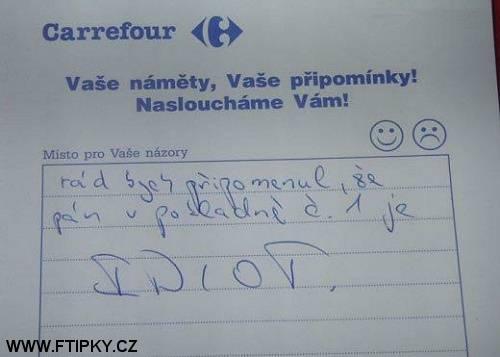 Carrefour
Vaše náměty, Vaše připomínky!
Nasloucháme Vám!
Místo pro Vaše názory
rád bych připomenul, že
pán v pokladně č. 1 je
IDIOT.
WWW.FTIPKY.CZ